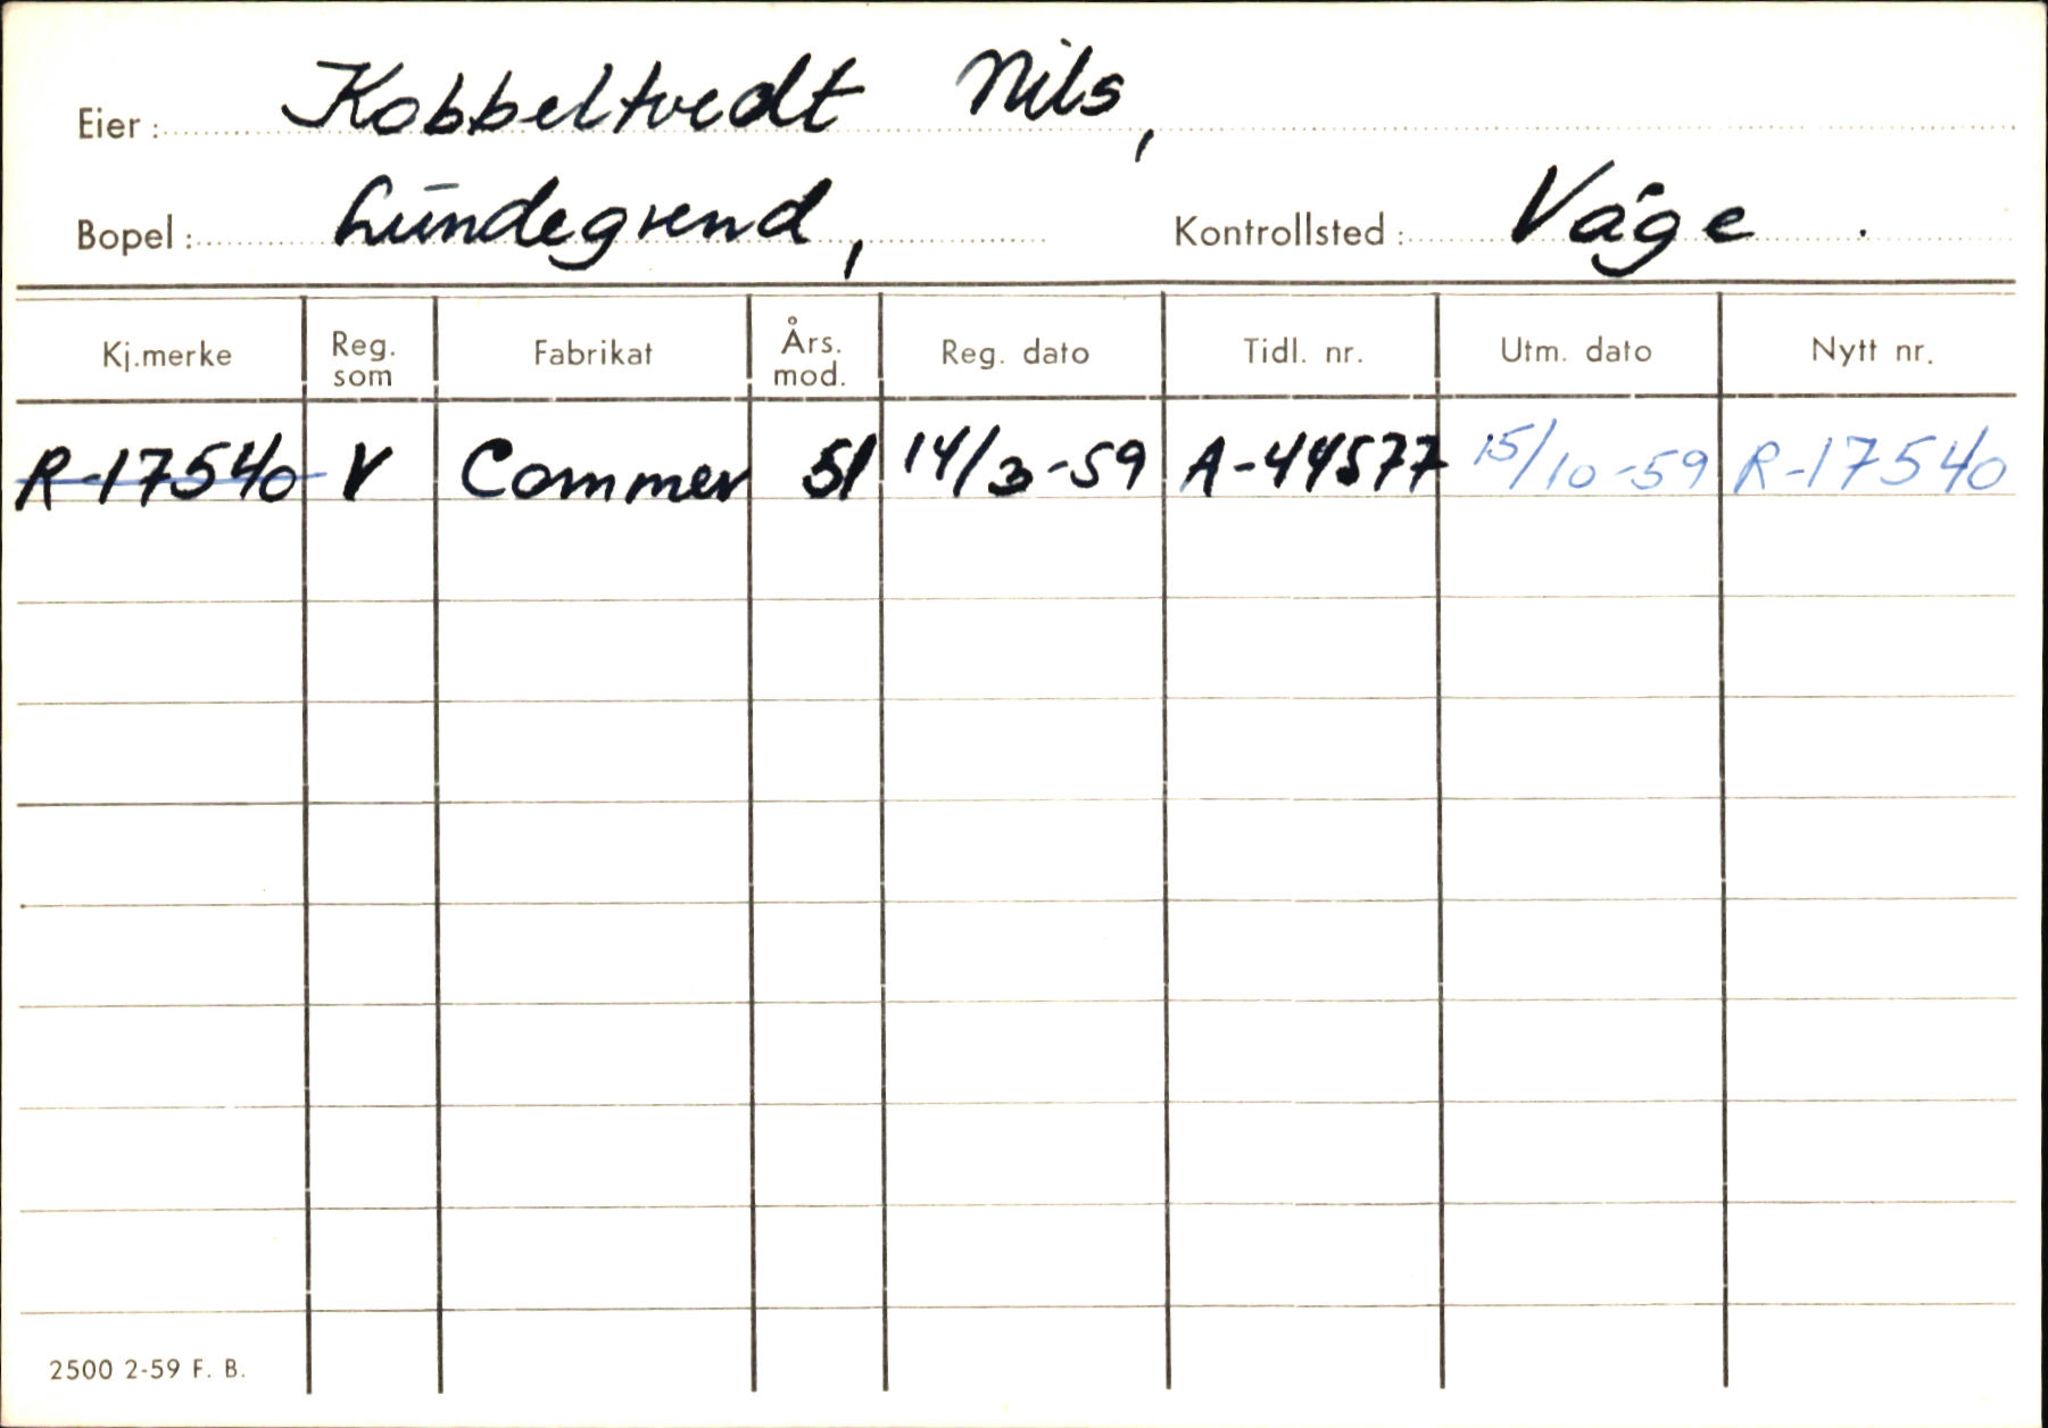 Eier: Kobbeltvedt Nils,
Bopel: Lundegrend, Kontrollsted: Våge.
Kj.merke Reg. som Fabrikat Års. mod. Reg. dato Tidl. nr. Utm. dato Nytt nr.
R-17540 V Commer 51 14/3-59 A-44577 15/10-59 R-17540
2500 2-59 F. B.